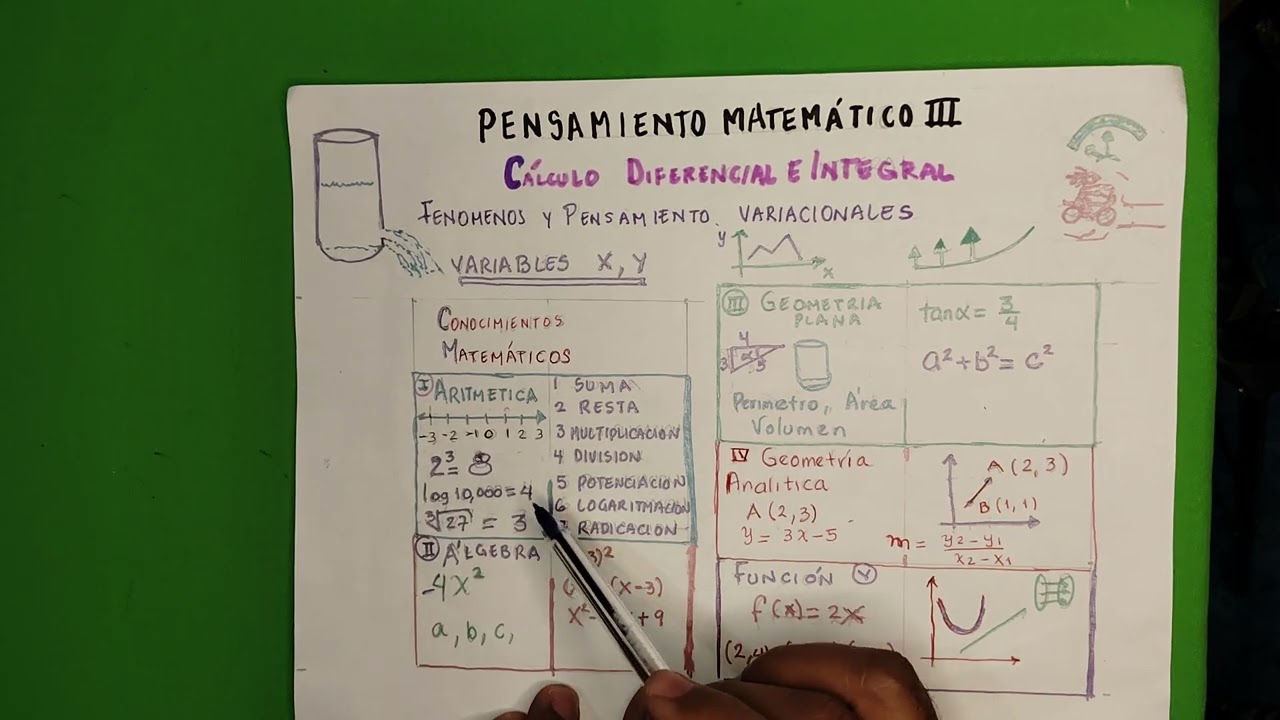 PENSAMIENTO MATEMÁTICO III
CÁLCULO DIFERENCIAL E INTEGRAL
FENOMENOS Y PENSAMIENTO. VARIACIONALES
VARIABLES X, Y
CONOCIMIENTOS
MATEMÁTICOS
I ARITMETICA
-3 -2 -1 0 1 2 3
2³ = 8
log 10,000 = 4
∛27 = 3
1 SUMA
2 RESTA
3 MULTIPLICACION
4 DIVISION
5 POTENCIACION
6 LOGARITMACION
RADICACION
II ÁLGEBRA
-4x²
a, b, c,
3)²
(x-3)
x² + 9
y
x
III GEOMETRIA
PLANA
4
3
α
5
Perimetro, Área
Volumen
tanα = 3/4
a² + b² = c²
IV Geometría
Analitica
A (2, 3)
y = 3x - 5
A (2, 3)
B (1, 1)
m = y₂ - y₁ / x₂ - x₁
FUNCIÓN V
f(x) = 2x